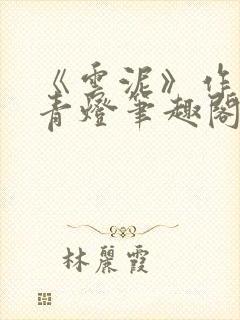 《雲泥》作
青燈筆趣閣
林麗霞